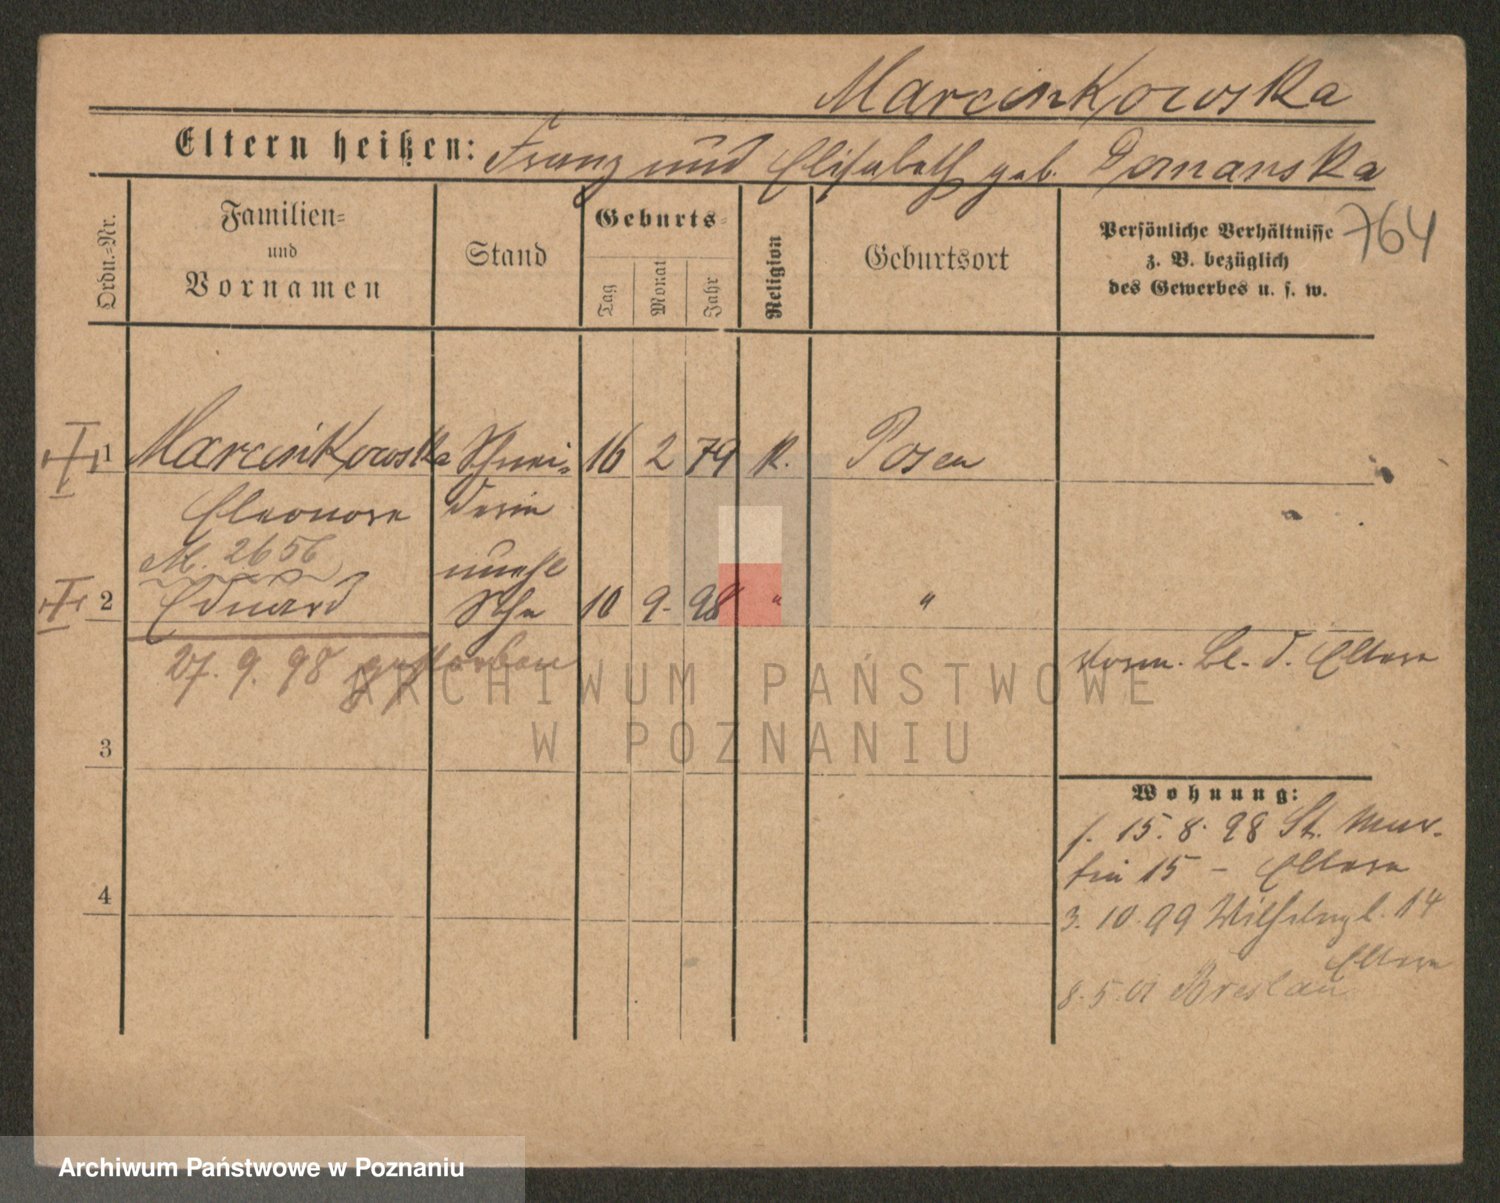 Marcinkowska
Eltern heißen: Franz und Elisabeth geb. Domanska
764
Ordn.-Nr.
Familien- und Vornamen
Stand
Geburts-
Tag Monat Jahr
Religion
Geburtsort
Persönliche Verhältnisse
z. B. bezüglich
des Gewerbes u. s. w.
1 Marcinkowska Schnei- 16 2 79 k. Posen
Eleonore derin
M. 2656
unehl
2 Eduard Sohn 10 9. 98 " "
27. 9. 98 gestorben
Bl. d. Eltern
ARCHIWUM PAŃSTWOWE
W POZNANIU
3
Wohnung:
f. 15. 8. 98 St. Mar-
tin 15 - Eltern
4
3. 10. 99 Wilhelmpl. 14
Eltern
8. 5. 01 Breslau
Archiwum Państwowe w Poznaniu